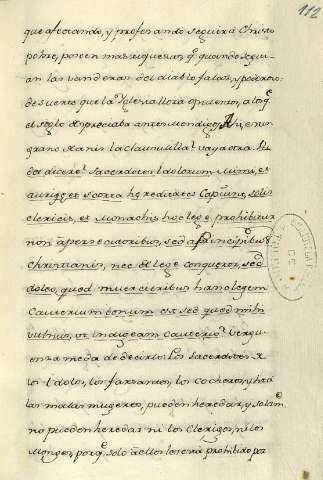 112
que afectando, y profesando seguir à Christo
pobre, poseen mas riquezas q.e quando segui-
an las vanderas del diablo falaz, y poderoso:
de suerte que la Yglesia llora opulentos, a los q.e
el siglo despreciaba antes mendigos. Y en un
grano
pudet dicere! Sacerdotes Idolorum, Mimi, et
aurigæ, et scorta hæreditates Capiunt: solis
clericis, et Monachis hoc lege prohibitur
non à persecutoribus, sed a principibus
christianis, nec de lege conqueror, sed
doleo, quod meruerimus hanc legem
cauterium bonum est sed quod mihi
vulnus, ut indigeam cauterio? Verguen
enza me da de decirlo: Los Sacerdotes de
los Idolos, los farsantes, los cocheros, y hasta
las malas mugeres, pueden heredar, y solam.te
no pueden heredar ni los Clerigos, ni los
Monges, porq.e solo à ellos les està prohibido por